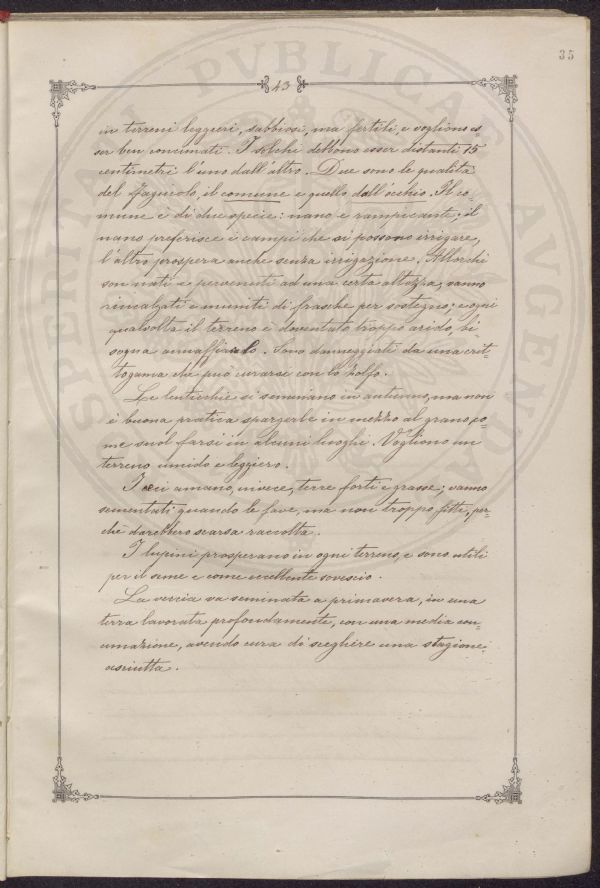 35
43
in terreni leggieri, sabbiosi, ma fertili, e vogliono es=
ser ben concimati. I solchi debbono esser distanti 15
centimetri l'uno dall'altro. Due sono le qualità
del fagiuolo, il comune e quello dall'occhio. Il co=
mune è di due specie: nano e rampicante; il
nano preferisce i campi che si possono irrigare,
l'altro prospera anche senza irrigazione. Allorchè
son nati e pervenuti ad una certa altezza, vanno
rincalzati e muniti di frasche per sostegno; e ogni
qualvolta il terreno è doventato troppo arido, bi=
sogna annaffiarlo. Sono danneggiati da una crit=
togama che può curarsi con lo zolfo.
Le lenticchie si seminano in autunno, ma non
è buona pratica spargerle in mezzo al grano, co=
me suol farsi in alcuni luoghi. Vogliono un
terreno umido e leggiero.
I ceci amano, invece, terre forti e grasse; vanno
sementati quando le fave, ma non troppo fitti, per=
chè darebbero scarsa raccolta.
I lupini prosperano in ogni terreno, e sono utili
per il seme e come eccellente sovescio.
La veccia va seminata a primavera, in una
terra lavorata profondamente, con una media con=
cimazione, avendo cura di scegliere una stagione
asciutta.
SPEDITATI PVBLICAE AVGENDA